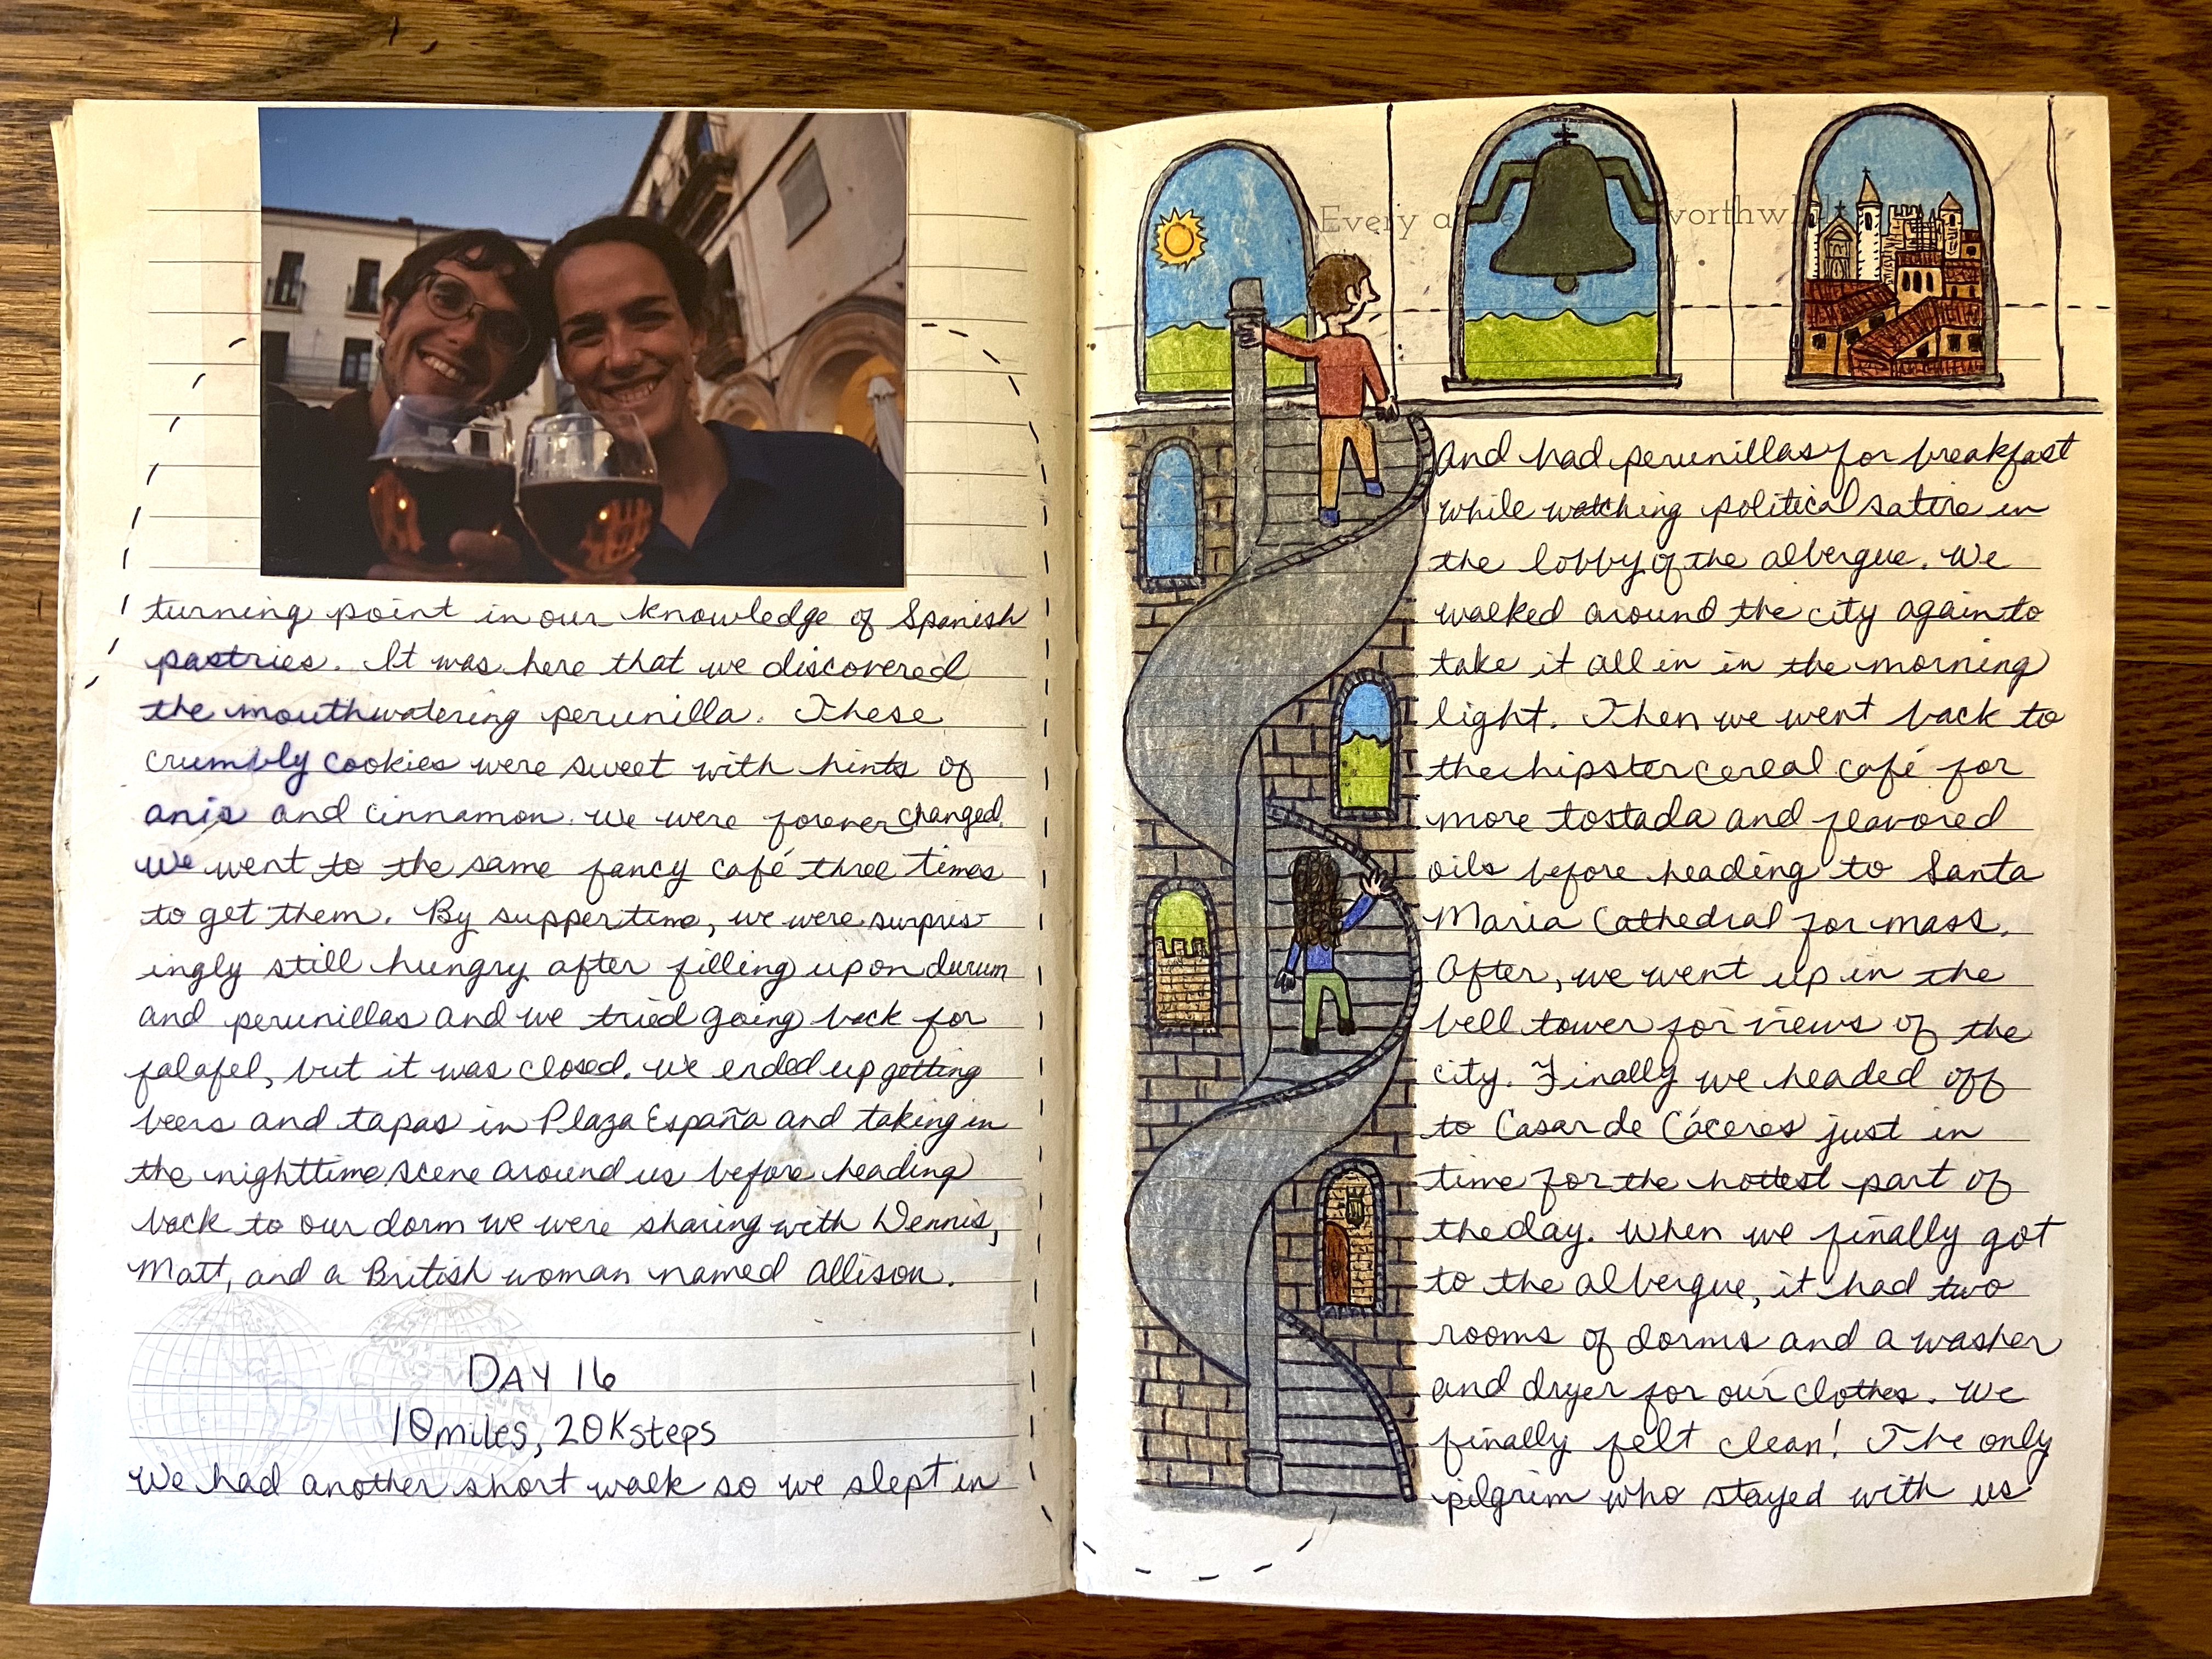 turning point in our knowledge of Spanish
pastries. It was here that we discovered
the mouthwatering perunilla. These
crumbly cookies were sweet with hints of
anis and cinnamon. We were forever changed.
We went to the same fancy café three times
to get them. By suppertime, we were surpris-
ingly still hungry after filling up on durum
and perunillas and we tried going back for
falafel, but it was closed. We ended up getting
beers and tapas in Plaza España and taking in
the nighttime scene around us before heading
back to our dorm we were sharing with Dennis,
Matt, and a British woman named Allison.
DAY 16
10 miles, 20K steps
We had another short walk so we slept in
Every a worthwhile
and had perunillas for breakfast
while watching political satire in
the lobby of the albergue. We
walked around the city again to
take it all in in the morning
light. Then we went back to
the hipster cereal café for
more tostada and flavored
oils before heading to Santa
Maria Cathedral for mass.
After, we went up in the
bell tower for views of the
city. Finally we headed off
to Casar de Cáceres just in
time for the hottest part of
the day. When we finally got
to the albergue, it had two
rooms of dorms and a washer
and dryer for our clothes. We
finally felt clean! The only
pilgrim who stayed with us